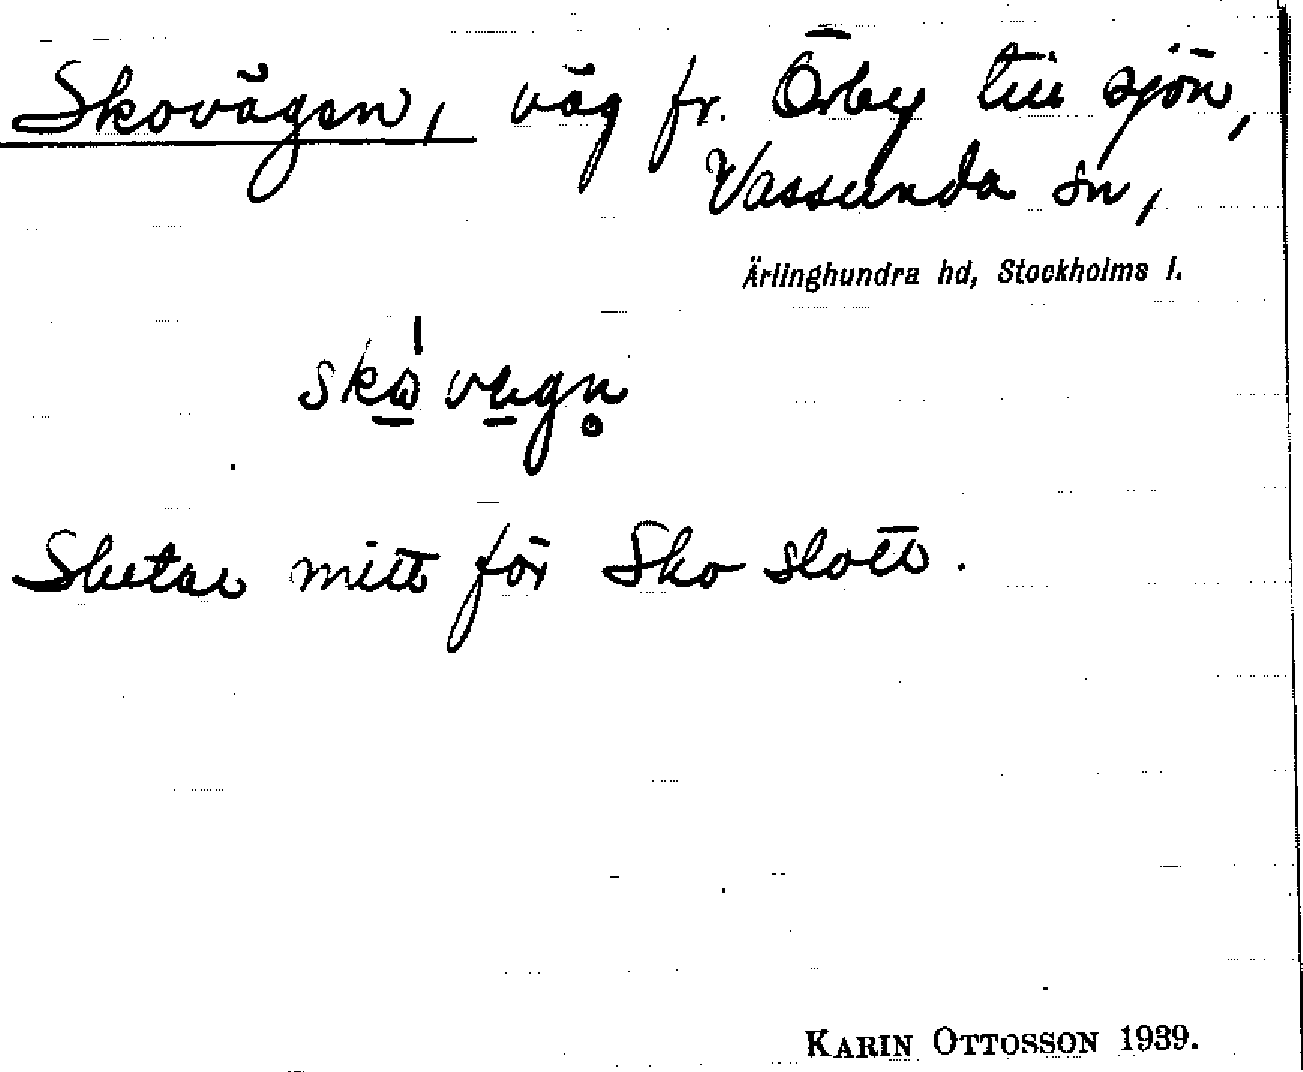 Skovägen, väg fr. Örby till sjön,
Vassunda sn,
Ärlinghundra hd, Stockholms l.
Slutar mitt för Sko slott.
KARIN OTTOSSON 1939.